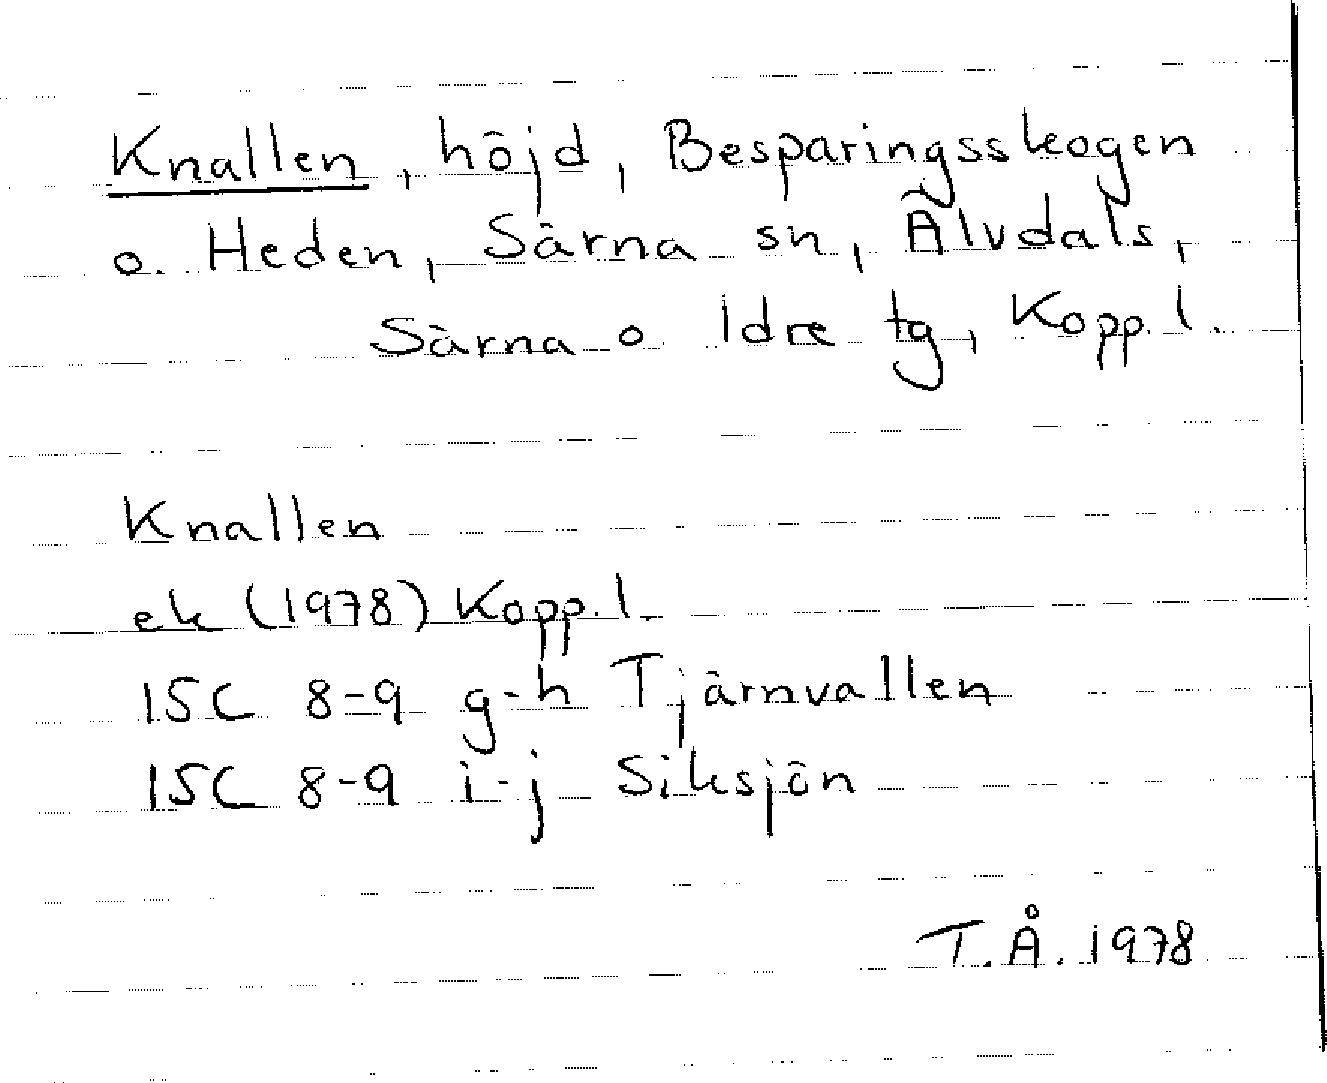 Knallen, höjd, Besparingsskogen
o. Heden, Särna sn, Älvdals,
Särna o Idre tg, Kopp. l.
Knallen
ek (1978) Kopp. l.
15C 8-9 g-h Tjärnvallen
15C 8-9 i-j Siksjön
T.Å. 1978